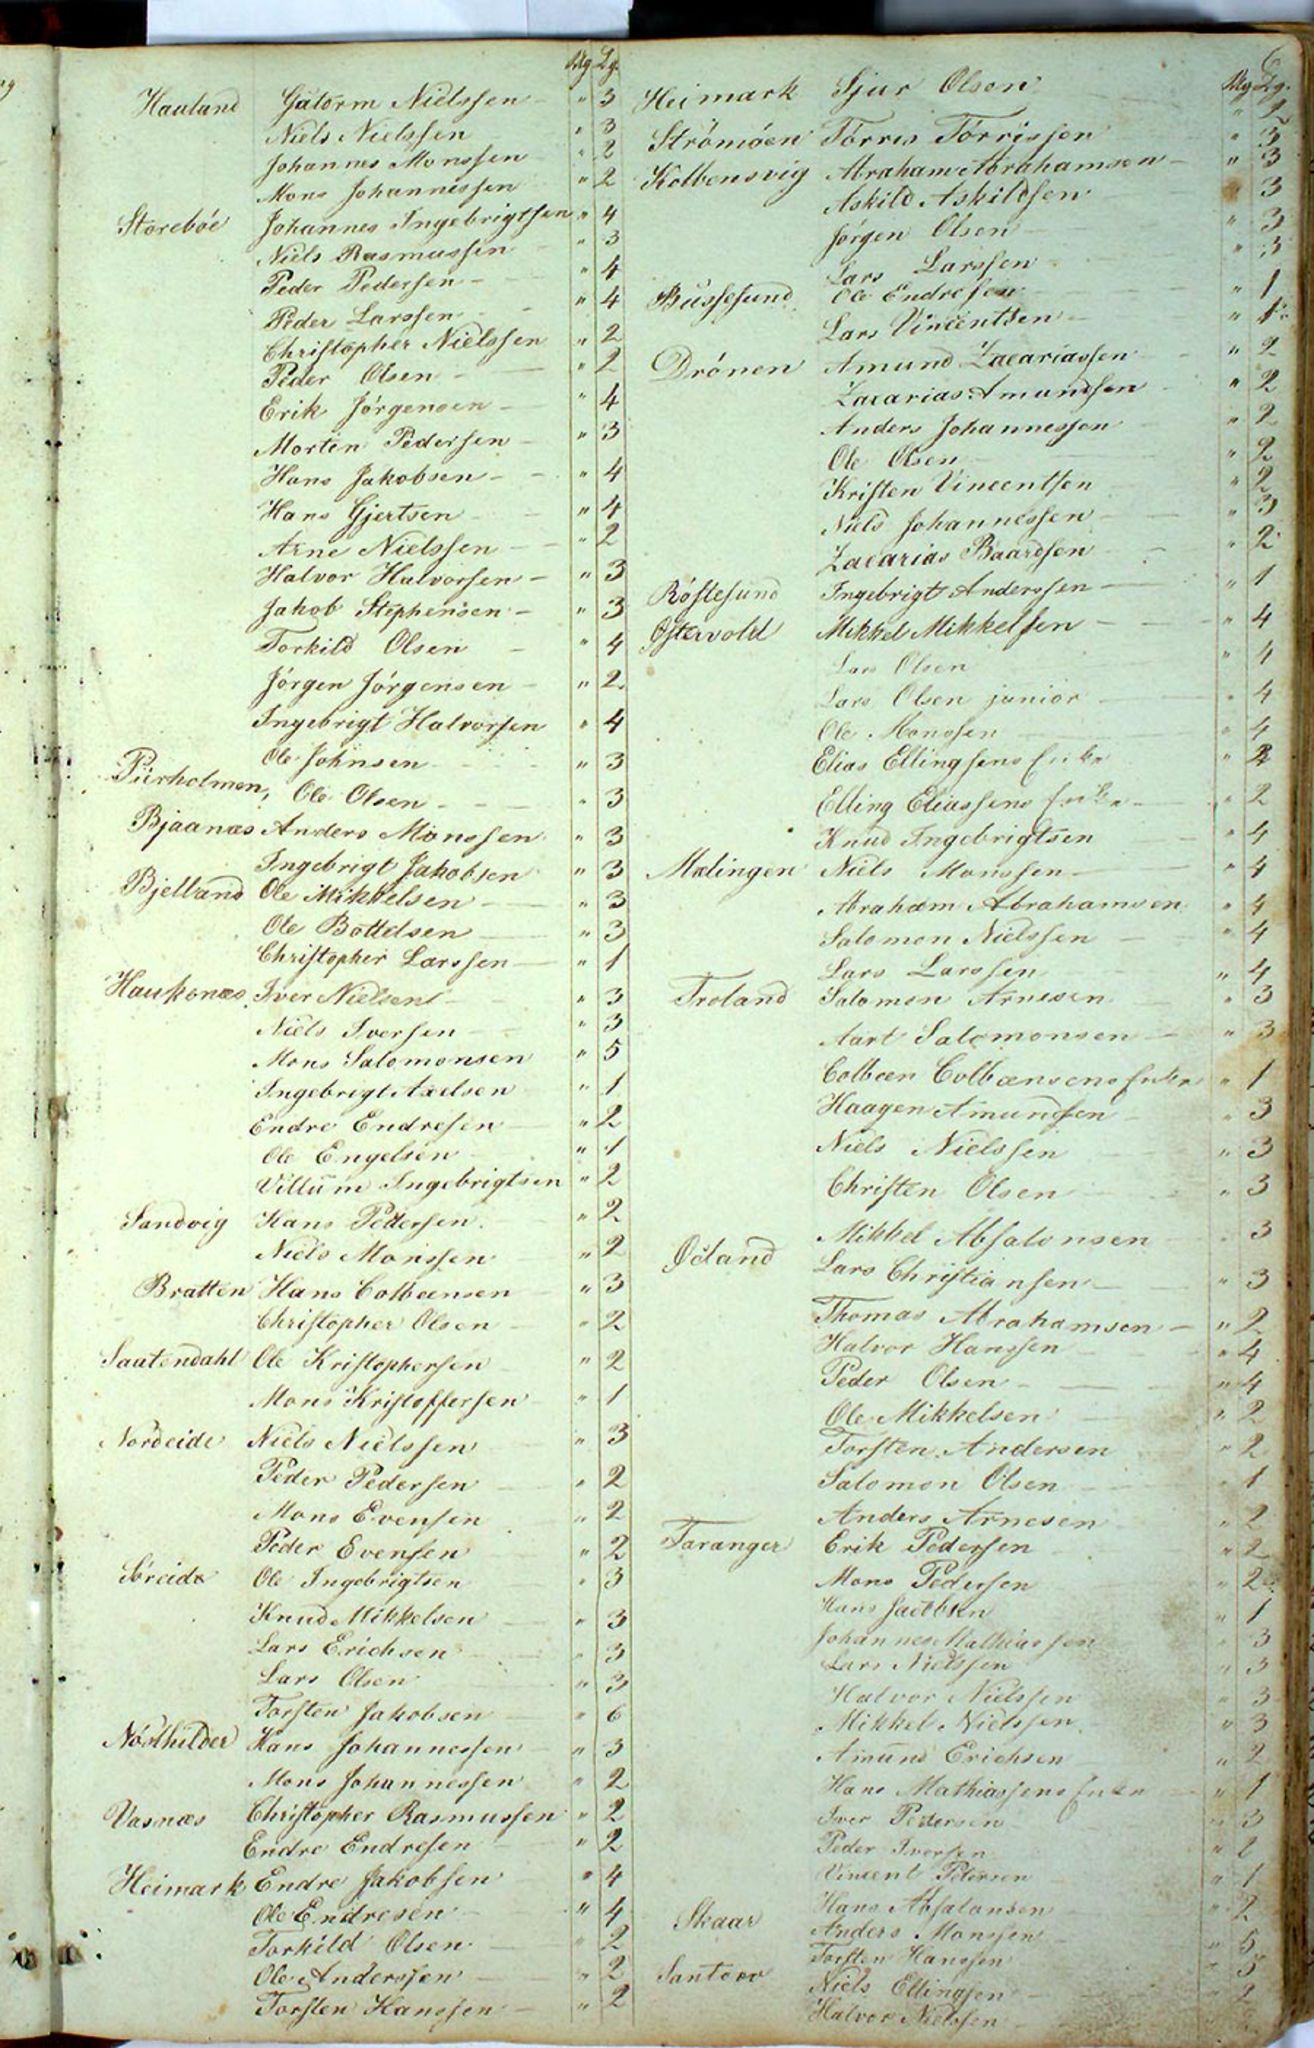 6
Mg Lg.
Hauland Gutorm Nielssen " 3
Niels Nielssen " 3
Johannes Monssen " 2
Mons Johannessen " 2
Storebøe Johannes Ingebrigtsen " 4
Niels Rasmussen " 3
Peder Pedersen " 4
Peder Larssen " 4
Christopher Nielssen " 2
Peder Olsen " 2
Erik Jørgensen " 4
Morten Pedersen " 3
Hans Jakobsen " 4
Hans Gjertsen " 4
Arne Nielssen " 2
Halvor Halvorsen " 3
Jakob Stephensen " 3
Torkild Olsen " 4
Jørgen Jørgensen " 2
Ingebrigt Halvorsen " 4
Ole Johnsen " 3
Pürholmen, Ole Olsen " 3
Bjaanæs Anders Monssen " 3
Ingebrigt Jakobsen " 3
Bjelland Ole Mikkelsen " 3
Ole Bottelsen " 3
Christopher Larssen " 1
Haukanæs Iver Nielsen " 3
Niels Iversen " 3
Mons Salomonsen " 5
Ingebrigt Axelsen " 1
Endre Endresen " 2
Ole Engelsen " 1
Villum Ingebrigtsen " 2
Sandvig Hans Pedersen " 2
Niels Monssen " 2
Bratten Hans Colbensen " 3
Christopher Olsen " 2
Sautendahl Ole Kristophersen " 2
Mons Kristoffersen " 1
Nordeide Niels Nielssen " 3
Peder Pedersen " 2
Mons Evensen " 2
Peder Evensen " 2
Søreide Ole Ingebrigtsen " 3
Knud Mikkelsen " 3
Lars Erichsen " 3
Lars Olsen " 3
Torsten Jakobsen " 6
Nósthilder Hans Johannessen " 3
Mons Johannessen " 2
Vasnæs Christopher Rasmussen " 2
Endre Endresen " 2
Heimark Endre Jakobsen " 4
Ole Endresen " 4
Torkild Olsen " 2
Ole Anderssen " 2
Torsten Hanssen " 2
Mg Lg.
Heimark Sjur Olsen " 2
Strömöen Törris Törrissen " 3
Kolbensvig Abraham Abrahamsen " 3
Askild Askildsen " 3
Jørgen Olsen " 3
Lars Larssen " 3
Bussesund Ole Endresen " 1
Lars Vincentsen " 1
Drónen Amund Zacariassen " 2
Zacarias Amundsen " 2
Anders Johannessen " 2
Ole Olsen " 2
Kristen Vincentsen " 2
Niels Johannessen " 3
Zacarias Baardsen " 2
Róstesund Ingebrigt Anderssen " 1
Ostervold Mikkel Mikkelsen " 4
Lars Olsen " 4
Lars Olsen junior " 4
Ole Monssen " 4
Elias Ellingsens Enke " 2
Elling Eliassens Enke " 2
Knud Ingebrigtsen " 4
Mælingen Niels Monssen " 4
Abraham Abrahamsen " 4
Salomon Nielssen " 4
Lars Larssen " 4
Troland Salomon Arnesen " 3
Aart Salomonsen " 3
Colbæn Colbænsens Enke " 1
Haagen Amundsen " 3
Niels Nielssen " 3
Christen Olsen " 3
Mikkel Absalonsen " 3
Qvland Lars Christiansen " 3
Thomas Abrahamsen " 2
Halvor Hanssen " 4
Peder Olsen " 4
Ole Mikkelsen " 2
Torsten Andersen " 2
Salomon Olsen " 1
Anders Arnesen " 2
Taranger Erik Pedersen " 2
Mons Pedersen " 2
Hans Jacobsen " 1
Johannes Mathiassen " 3
Lars Nielssen " 3
Halvor Nielssen " 3
Mikkel Nielssen " 3
Amund Erichsen " 2
Hans Mathiassens Enke " 1
Iver Pedersen " 3
Peder Iversen "
Vincent Petersen " 1
Hans Absalonsen " 2
Skaar Anders Monssen " 5
Torsten Hanssen " 3
Santorv Niels Ellingsen " 2
Halvor Nielssen